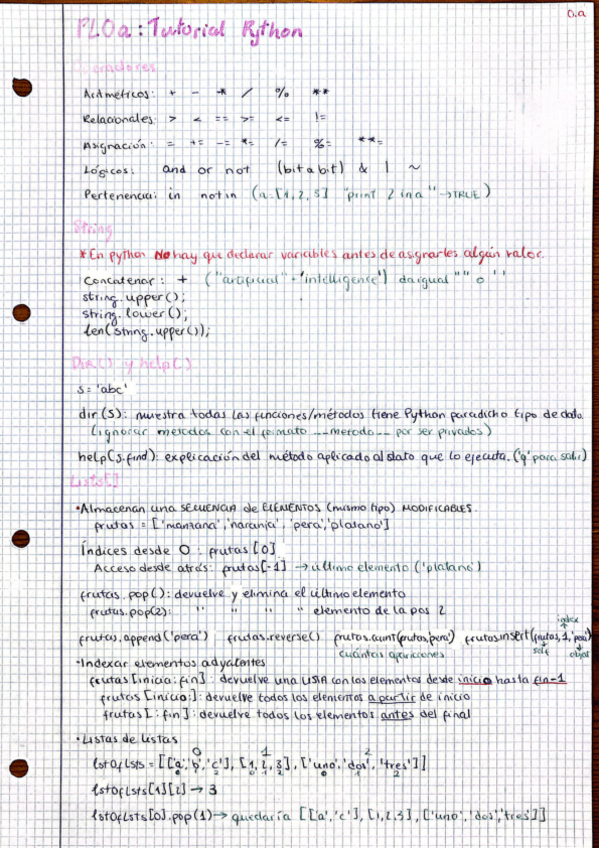 0.a
PL0a: Tutorial Python
Operadores
Aritméticos: + - * / % **
Relacionales: > < == >= <= !=
Asignación: = += -= *= /= %= **=
Lógicos: and or not (bit a bit) & | ~
Pertenencia: in not in (a=[1,2,3] "print 2 in a" → TRUE)
String
*En python NO hay que declarar variables antes de asignarles algún valor.
Concatenar: + ("artificial"+'intelligence') da igual " " o ' '
string.upper();
string.lower();
len(string.upper());
Dir() y help()
s='abc'
dir(s): muestra todas las funciones/métodos tiene Python para dicho tipo de dato.
(ignorar métodos con el formato __metodo__ por ser privados)
help(s.find): explicación del método aplicado al dato que lo ejecuta. ('q' para salir)
Lists[]
•Almacenan una SECUENCIA de ELEMENTOS (mismo tipo) MODIFICABLES.
frutas = ['manzana','naranja','pera','platano']
Índices desde 0: frutas[0]
Acceso desde atrás: frutas[-1] → último elemento ('platano')
frutas.pop(): devuelve y elimina el último elemento
frutas.pop(2): " " " " elemento de la pos 2
index
frutas.append('pera') frutas.reverse() frutas.count(frutas,'pera') frutas.insert(frutas,1,'pera')
cuántas apariciones self objet
•Indexar elementos adyacentes
frutas[inicio:fin]: devuelve una LISTA con los elementos desde inicio hasta fin-1
frutas[inicio:]: devuelve todos los elementos a partir de inicio
frutas[:fin]: devuelve todos los elementos antes del final
•Listas de listas
0 1 2
lstOfLsts=[['a','b','c'],[1,2,3],['uno','dos','tres']]
0 1 2 0 1 2 0 1 2
lstOfLsts[1][2] → 3
lstOfLsts[0].pop(1) → quedaría [['a','c'],[1,2,3],['uno','dos','tres']]